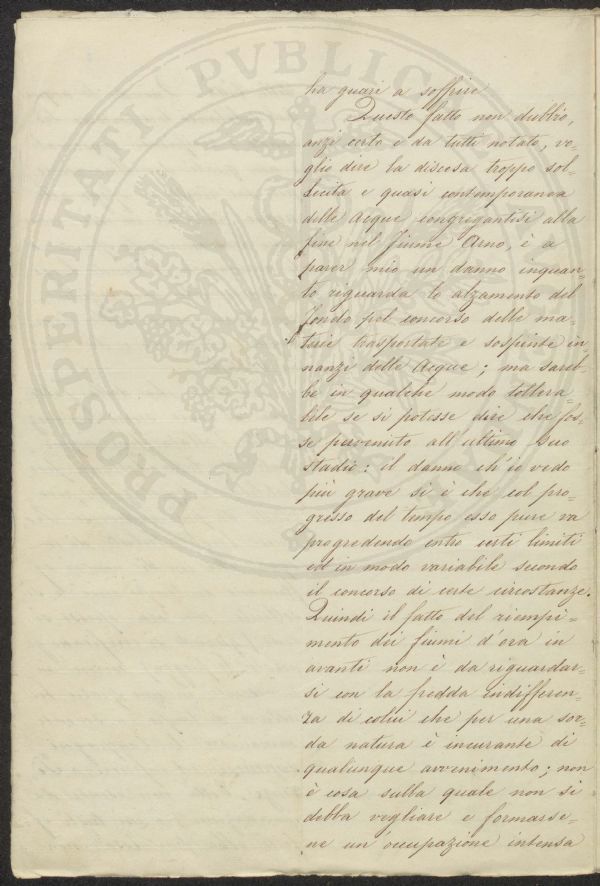 PROSPERITATI PVBLICAE
ha guari a soffrire
Questo fatto non dubbio,
anzi certo e da tutti notato, vo=
glio dire la discesa troppo sol=
lecita e quasi contemporanea
delle Acque congregantisi alla
fine nel fiume Arno, è a
parer mio un danno inquan=
to riguarda lo alzamento del
fondo pel concorso delle ma=
terie trasportate e sospinte in
nanzi delle Acque; ma sareb=
be in qualche modo tollera=
bile se si potesse dire che fos=
se pervenuto all'ultimo suo
stadio: il danno ch'io vedo
più grave si è che col pro=
gresso del tempo esso pure va
progredendo entro certi limiti
ed in modo variabile secondo
il concorso di certe circostanze.
Quindi il fatto del riempi=
mento dei fiumi d'ora in
avanti non è da riguardar=
si con la fredda indifferen=
za di colui che per una sor=
da natura è incurante di
qualunque avvenimento; non
è cosa sulla quale non si
debba vegliare e formarse=
ne un'occupazione intensa